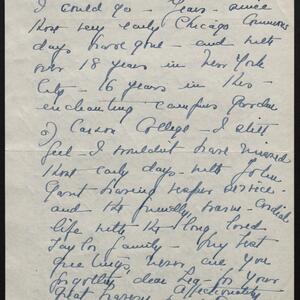 I could go - Years - since
those very early Chicago Commons
days have gone - and with
over 18 years in New York
City - 16 years in this
enchanting campus garden
of Carson College - I still
feel - I wouldn't have missed
those early days - with John
Gavit having vesper services -
and the friendly, warm - cordial
life with the long loved
Taylor family - My best
greetings never are you
forgotten, dear Lea - for your
great
affectionately